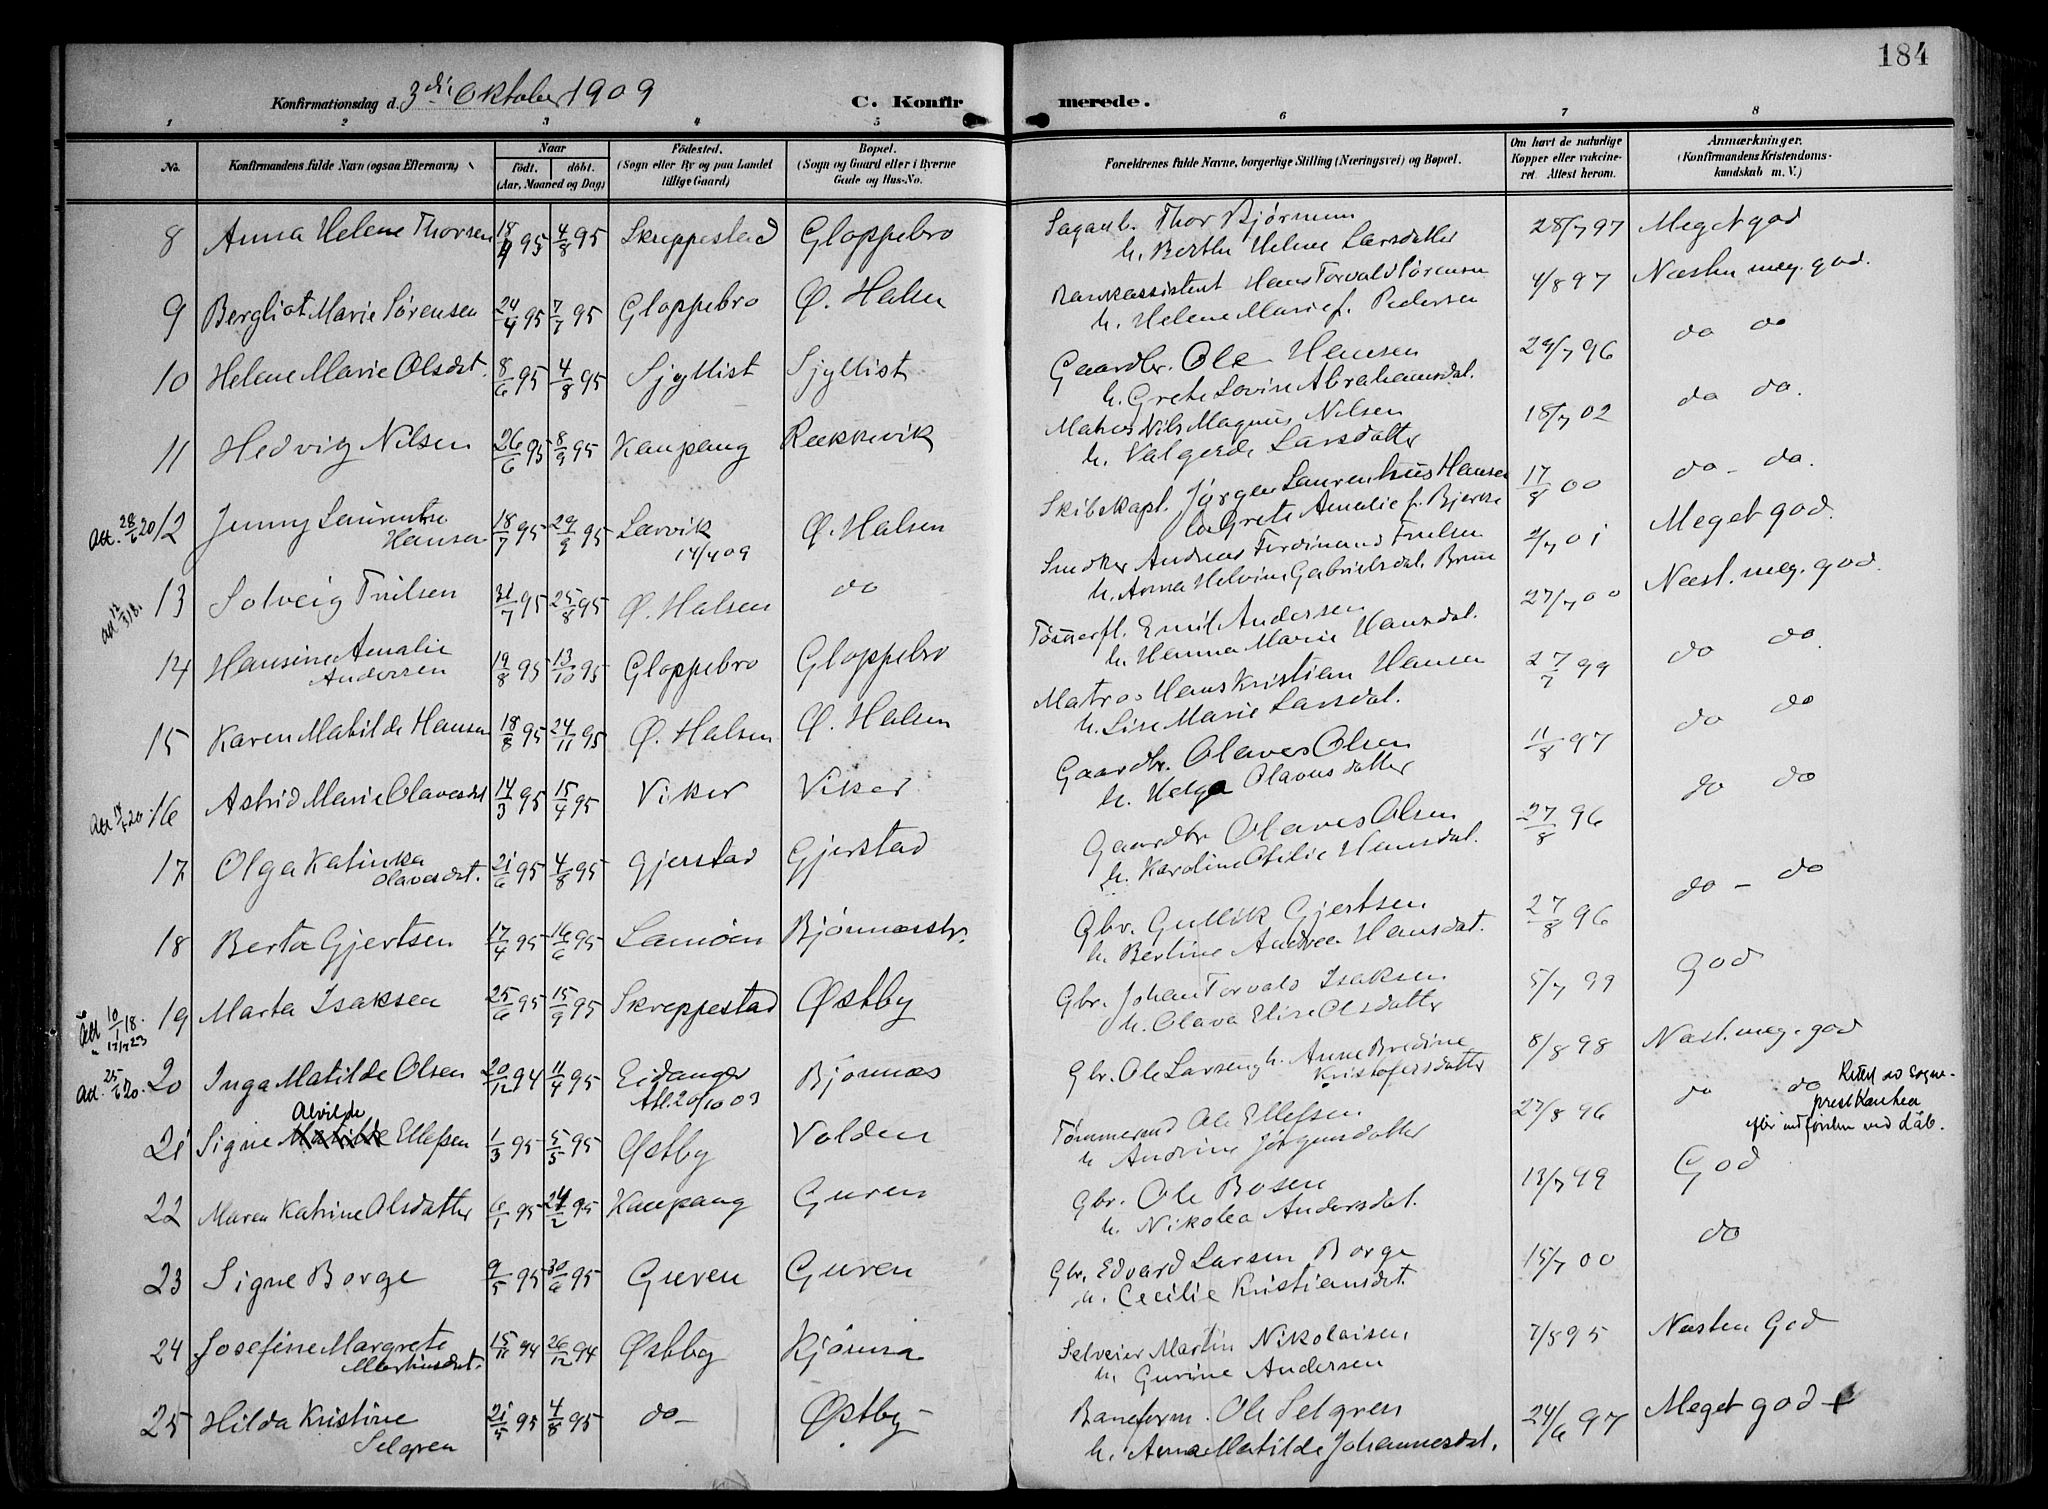 184
Konfirmationsdag d. 3die Oktober 1909 C. Konfirmerede.
1 2 3 4 5 6 7 8
No. Konfirmandens fulde Navn (ogsaa Efternavn) Naar født. døbt. (Aar, Maaned og Dag) Fødested. (Sogn eller By og paa Landet tillige Gaard) Bopæl. (Sogn og Gaard eller i Byerne Gade og Hus-No. Forældrenes fulde Navne, borgerlige Stilling (Næringsvei) og Bopæl. Om havt de naturlige Kopper eller vaccineret. Attest herom. Anmærkninger. (Konfirmandens Kristendomskundskab m. V.)
8 Anna Helene Thorsen 18/4 95 4/8 95 Skreppestad Gloppebro Sagarb. Thor Bjørnsen 28/7 97 Meget god
h. Berthe Helene Larsdatter
9 Bergliot Marie Sørensen 24/4 95 7/7 95 Gloppebro Ø. Halsen Bankassistent Hans Torvald Sørensen 4/8 97 Næsten meg. god.
h. Helene Marie f. Pedersen
10 Helene Marie Olsdat. 8/6 95 4/8 95 Sjyllist Sjyllist Gaardbr. Ole Hansen 29/7 96 do do
h. Grete Lovise Abrahamsdat.
11 Hedvig Nilsen 26/6 95 8/9 95 Kaupang Rekkevik Matros Nils Magnus Nilsen 18/7 02 do do.
h. Valgerde Larsdatter
Att. 28/6 20 12 Jenny Laurentse Hansen 18/7 95 29/9 95 Larvik 14/4 09 Ø. Halsen Skibskapt. Jørgen Laurentius Hansen 17/8 00 do - do.
h. Grete Amalie f. Bjerke
Att 12/3 18. 13 Solveig Trulsen 31/7 95 25/8 95 Ø. Halsen do Snedker Andreas Ferdinand Trulsen 2/7 01 Meget god.
h. Anna Helvine Gabrielsdat. Brun
14 Hansine Amalie Andersen 19/8 95 13/10 95 Gloppebro Gloppebro Tømmerfl. Emil Andersen 27/7 00 Næst. meg. god.
h. Hanna Marie Hansdat.
15 Karen Matilde Hansen 18/8 95 24/11 95 Ø. Halsen Ø. Halsen Matros Hans Kristian Hansen 27/7 99 do do
h. Lise Marie Larsdat.
16 Astrid Marie Olavesdat 14/3 95 15/4 95 Viker Viker Gaardbr. Olaves Olsen 11/8 97 do do
h. Helga Olavusdatter
17 Olga Katinka Olavesdat. 21/6 95 4/8 95 Gjerstad Gjerstad Gaardbr Olaves Olsen 27/8 96 do do
h. Karoline Otilie Hansdat.
18 Berta Gjertsen 17/4 95 16/6 95 Lamøen Bjønnesstr. Gbr. Gullik Gjertsen 27/8 96 do - do
h. Bertine Andrea Hansdat.
Att 10/1 18. " 17/7 23 19 Marta Isaksen 25/6 95 15/9 95 Skreppestad Østby Gbr. Johan Torvald Isaksen 5/7 99 God
h. Olava Elise Olsdatter
Att. 25/6 20. 20 Inga Matilde Olsen 20/12 94 11/4 95 Eidanger Att. 20/10 09 Bjønnes Gbr. Ole Larsen h. Anne Bredine Kristofersdatter 8/8 98 Næst. meg. god
21 Signe Matilde Alvilde Ellefsen 1/3 95 5/5 95 Østby Volden Tømmermd Ole Ellefsen 27/8 96 do do
h. Andrine Jørgensdatter
22 Maren Katrine Olsdatter 6/1 95 24/2 95 Kaupang Guren Gbr. Ole Bosen 13/7 99 God
h. Nikolea Andersdat.
23 Signe Borge 9/5 95 30/6 95 Guren Guren Gbr. Edvard Larsen Borge 15/7 00 do
h. Cecilie Kristiansdat.
24 Josefine Margrete Martinsdat. 15/11 94 26/12 94 Østby Kjønna Selveier Martin Nikolaisen, 7/8 95 Næsten God
h. Gurine Andersen
25 Hilda Kristine Selgren 21/5 95 4/8 95 do - Østby - Baneform. Ole Selgren 24/6 97 Meget god
h. Anna Matilde Johannesdat.